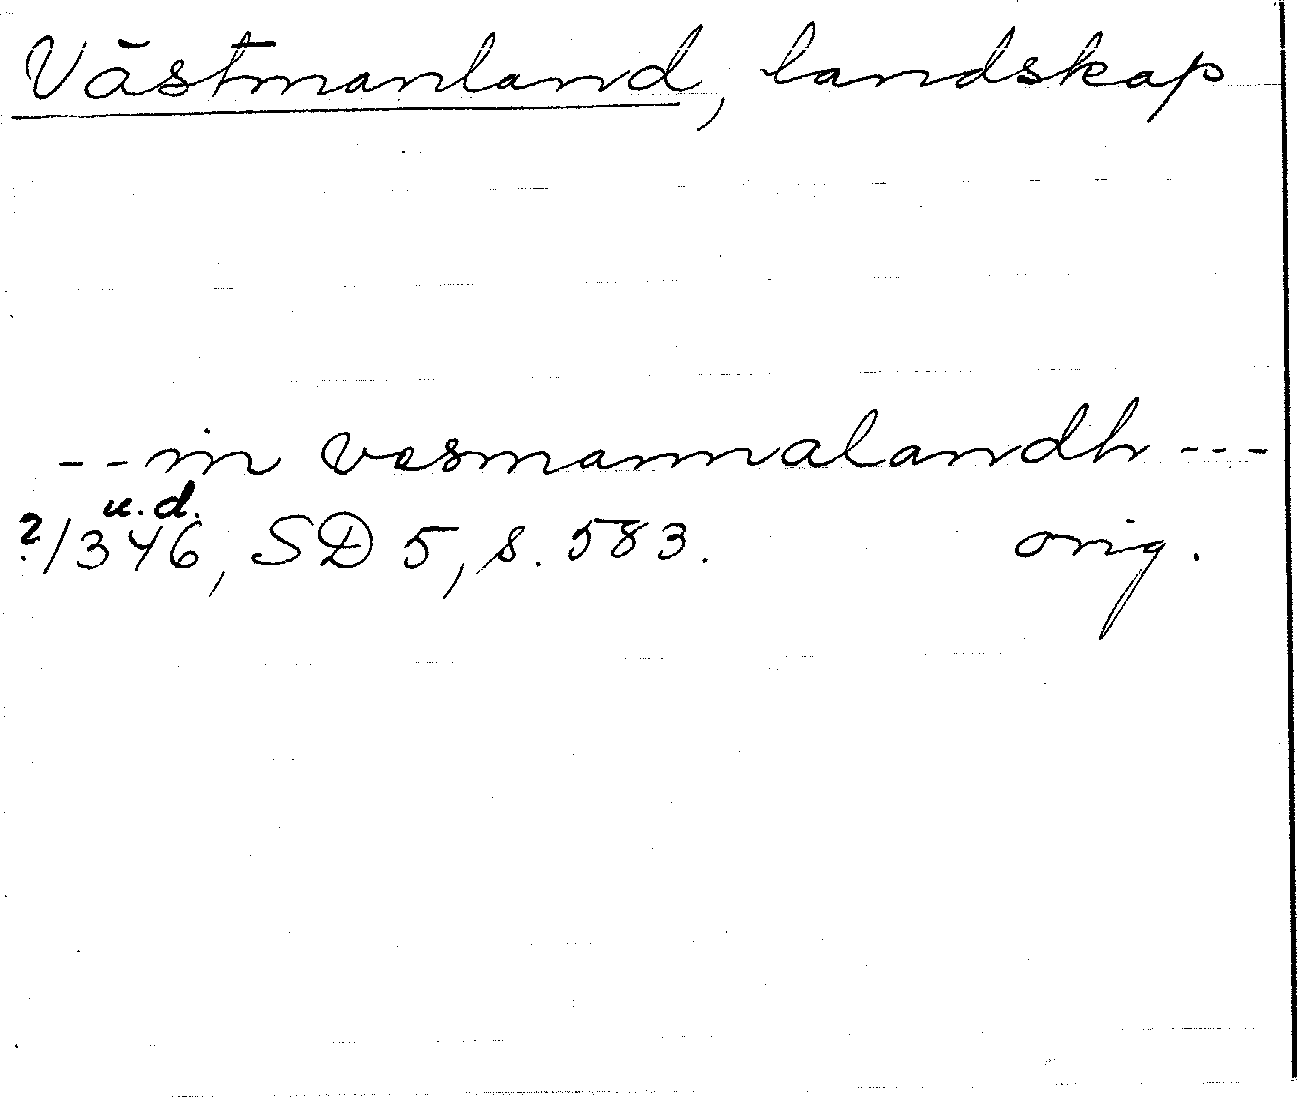 Västmanland, landskap
--in vesmannalandh---
u.d.
?/346, SD 5, s. 583. orig.